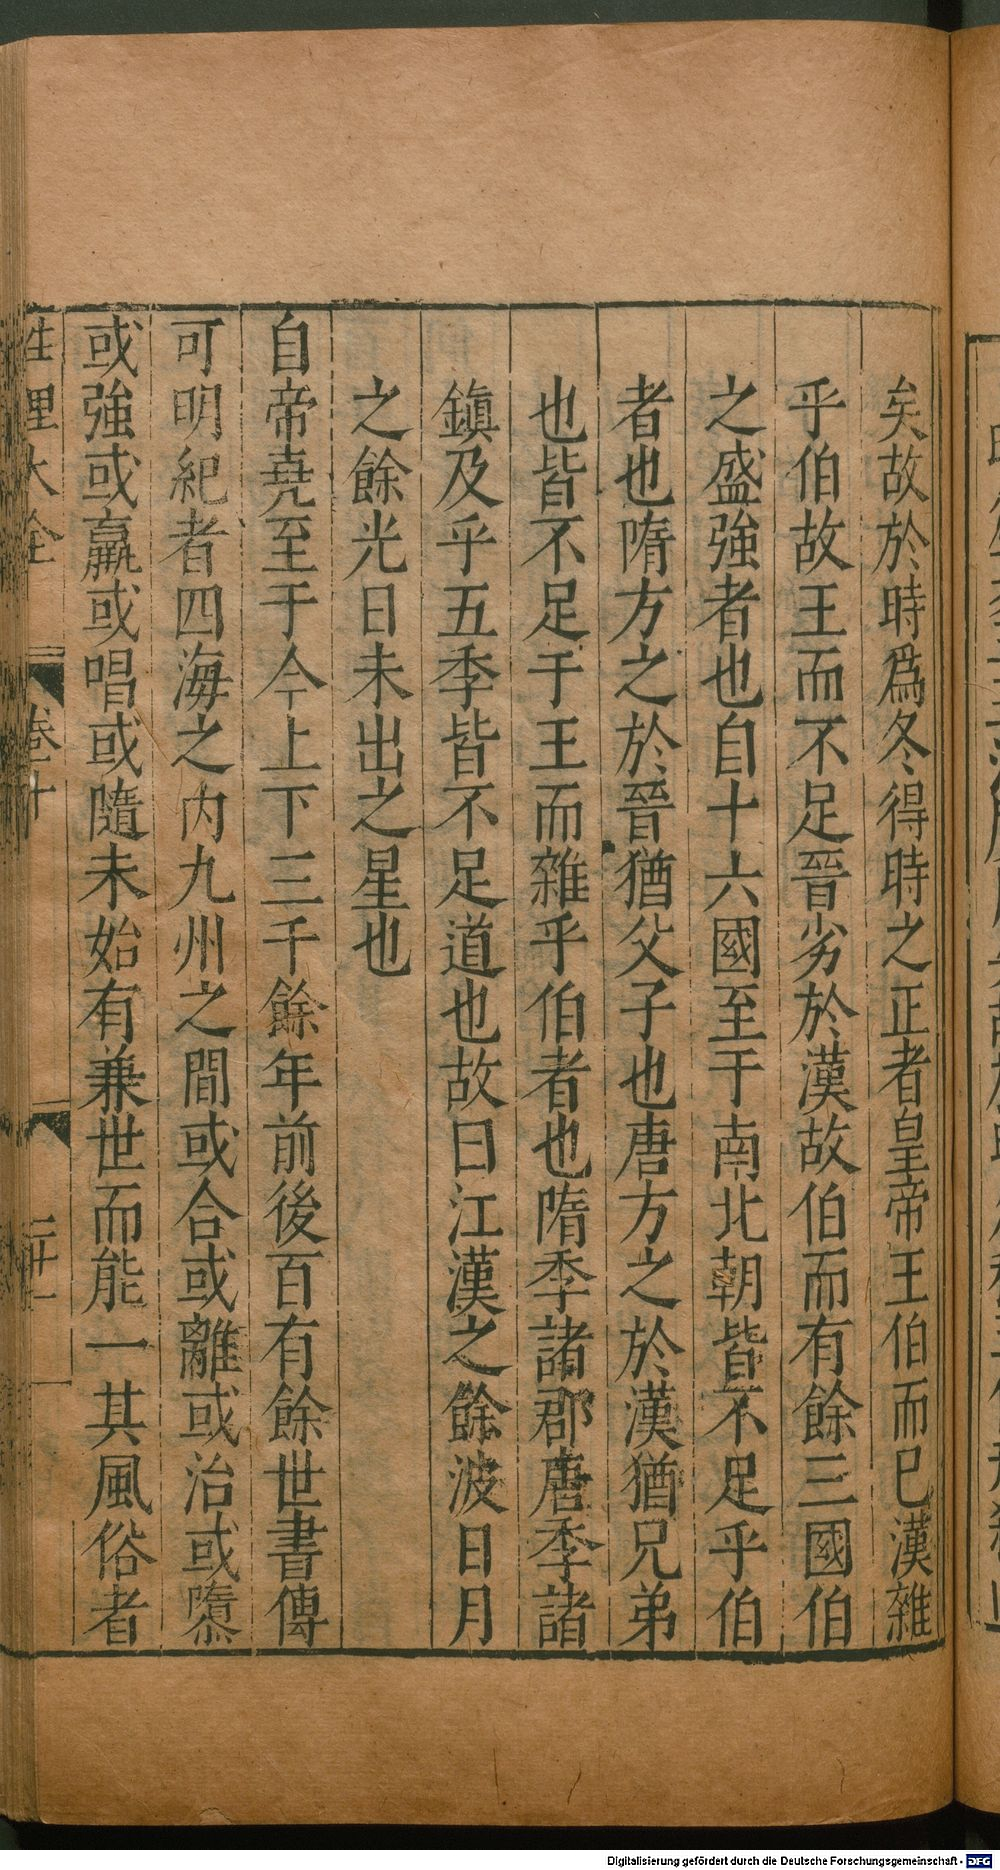 矣故於時爲冬得時之正者皇帝王伯而已漢雜
乎伯故王而不足晉劣於漢故伯而有餘三國伯
之盛強者也自十六國至于南北朝皆不足乎伯
者也隋方之於晉猶父子也唐方之於漢猶兄弟
也皆不足于王而雜乎伯者也隋季諸郡唐季諸
鎮及乎五季皆不足道也故曰江漢之餘波日月
之餘光日未出之星也
自帝堯至于今上下三千餘年前後百有餘世書傳
可明紀者四海之内九州之間或合或離或治或隳
或強或羸或唱或隨未始有兼世而能一其風俗者
性理大全 卷十 二十一
Digitalisierung gefördert durch die Deutsche Forschungsgemeinschaft - DFG